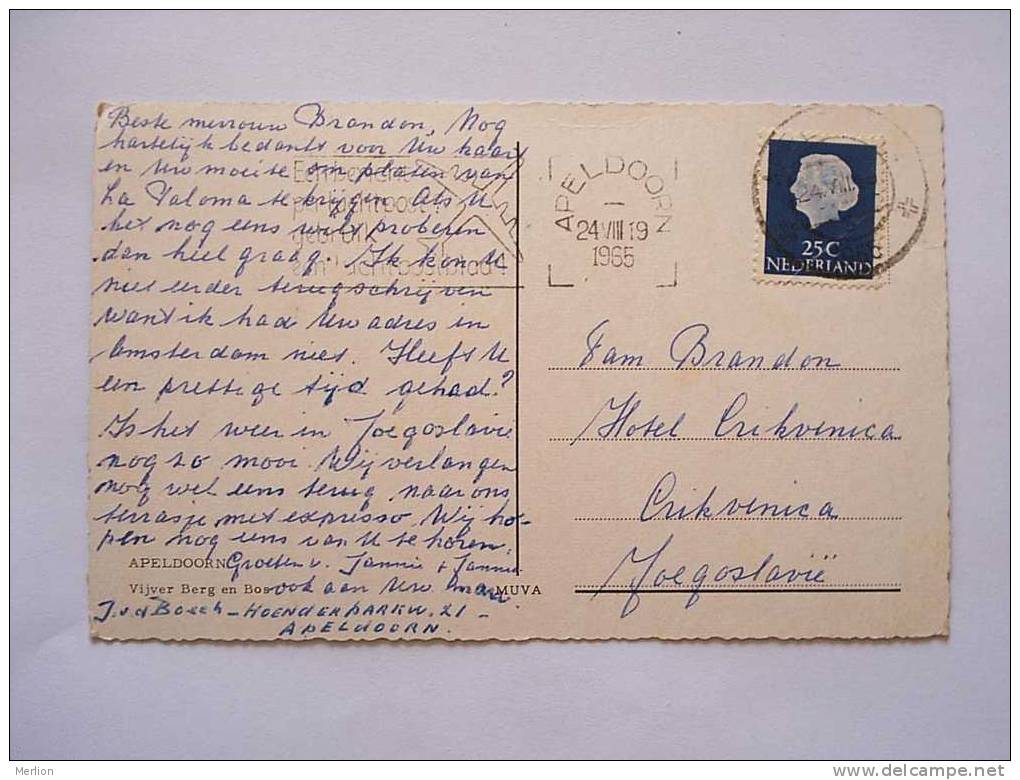 Beste mevrouw Brandon, Nog
hartelijk bedankt voor Uw kaart
en Uw moeite om platen van
La Paloma te krijgen. Als U
het nog eens wilt proberen
dan heel graag. Ik kon U
niet eerder terugschrijven
want ik had Uw adres in
Amsterdam niet. Heeft U
een prettige tijd gehad?
Is het weer in Joegoslavië
nog zo mooi. Wij verlangen
nog wel eens terug naar ons
terrasje met expresso. Wij ho-
pen nog eens van U te horen.
Groeten v. Jannie + Jannie
ook aan Uw man
J.v.d Bosch - HOENDERPARKW. 21 -
APELDOORN.
APELDOORN
Vijver Berg en Bos
MUVA
per luchtpost?
gebruik
een luchtpostblad
APELDOORN
24 VIII 19
1965
24.VIII
25C
NEDERLAND
Fam Brandon
Hotel Crikvenica
Crikvenica
Joegoslavië
Merlion
http://www.delcampe.net